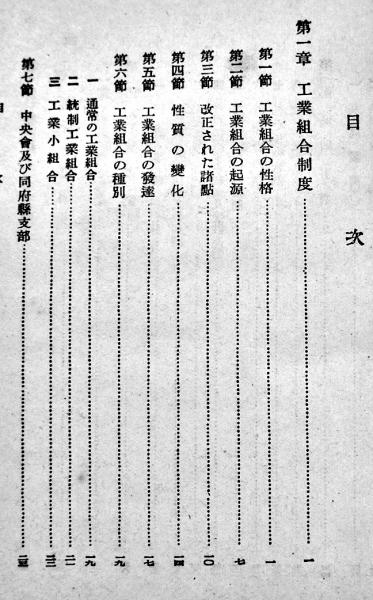 目次
第一章 工業組合制度……一
第一節 工業組合の性格……一
第二節 工業組合の起源……七
第三節 改正された諸點……一〇
第四節 性質の變化……一四
第五節 工業組合の發達……一七
第六節 工業組合の種別……一九
一 通常の工業組合……一九
二 統制工業組合……二一
三 工業小組合……二三
第七節 中央會及び同府縣支部……
目